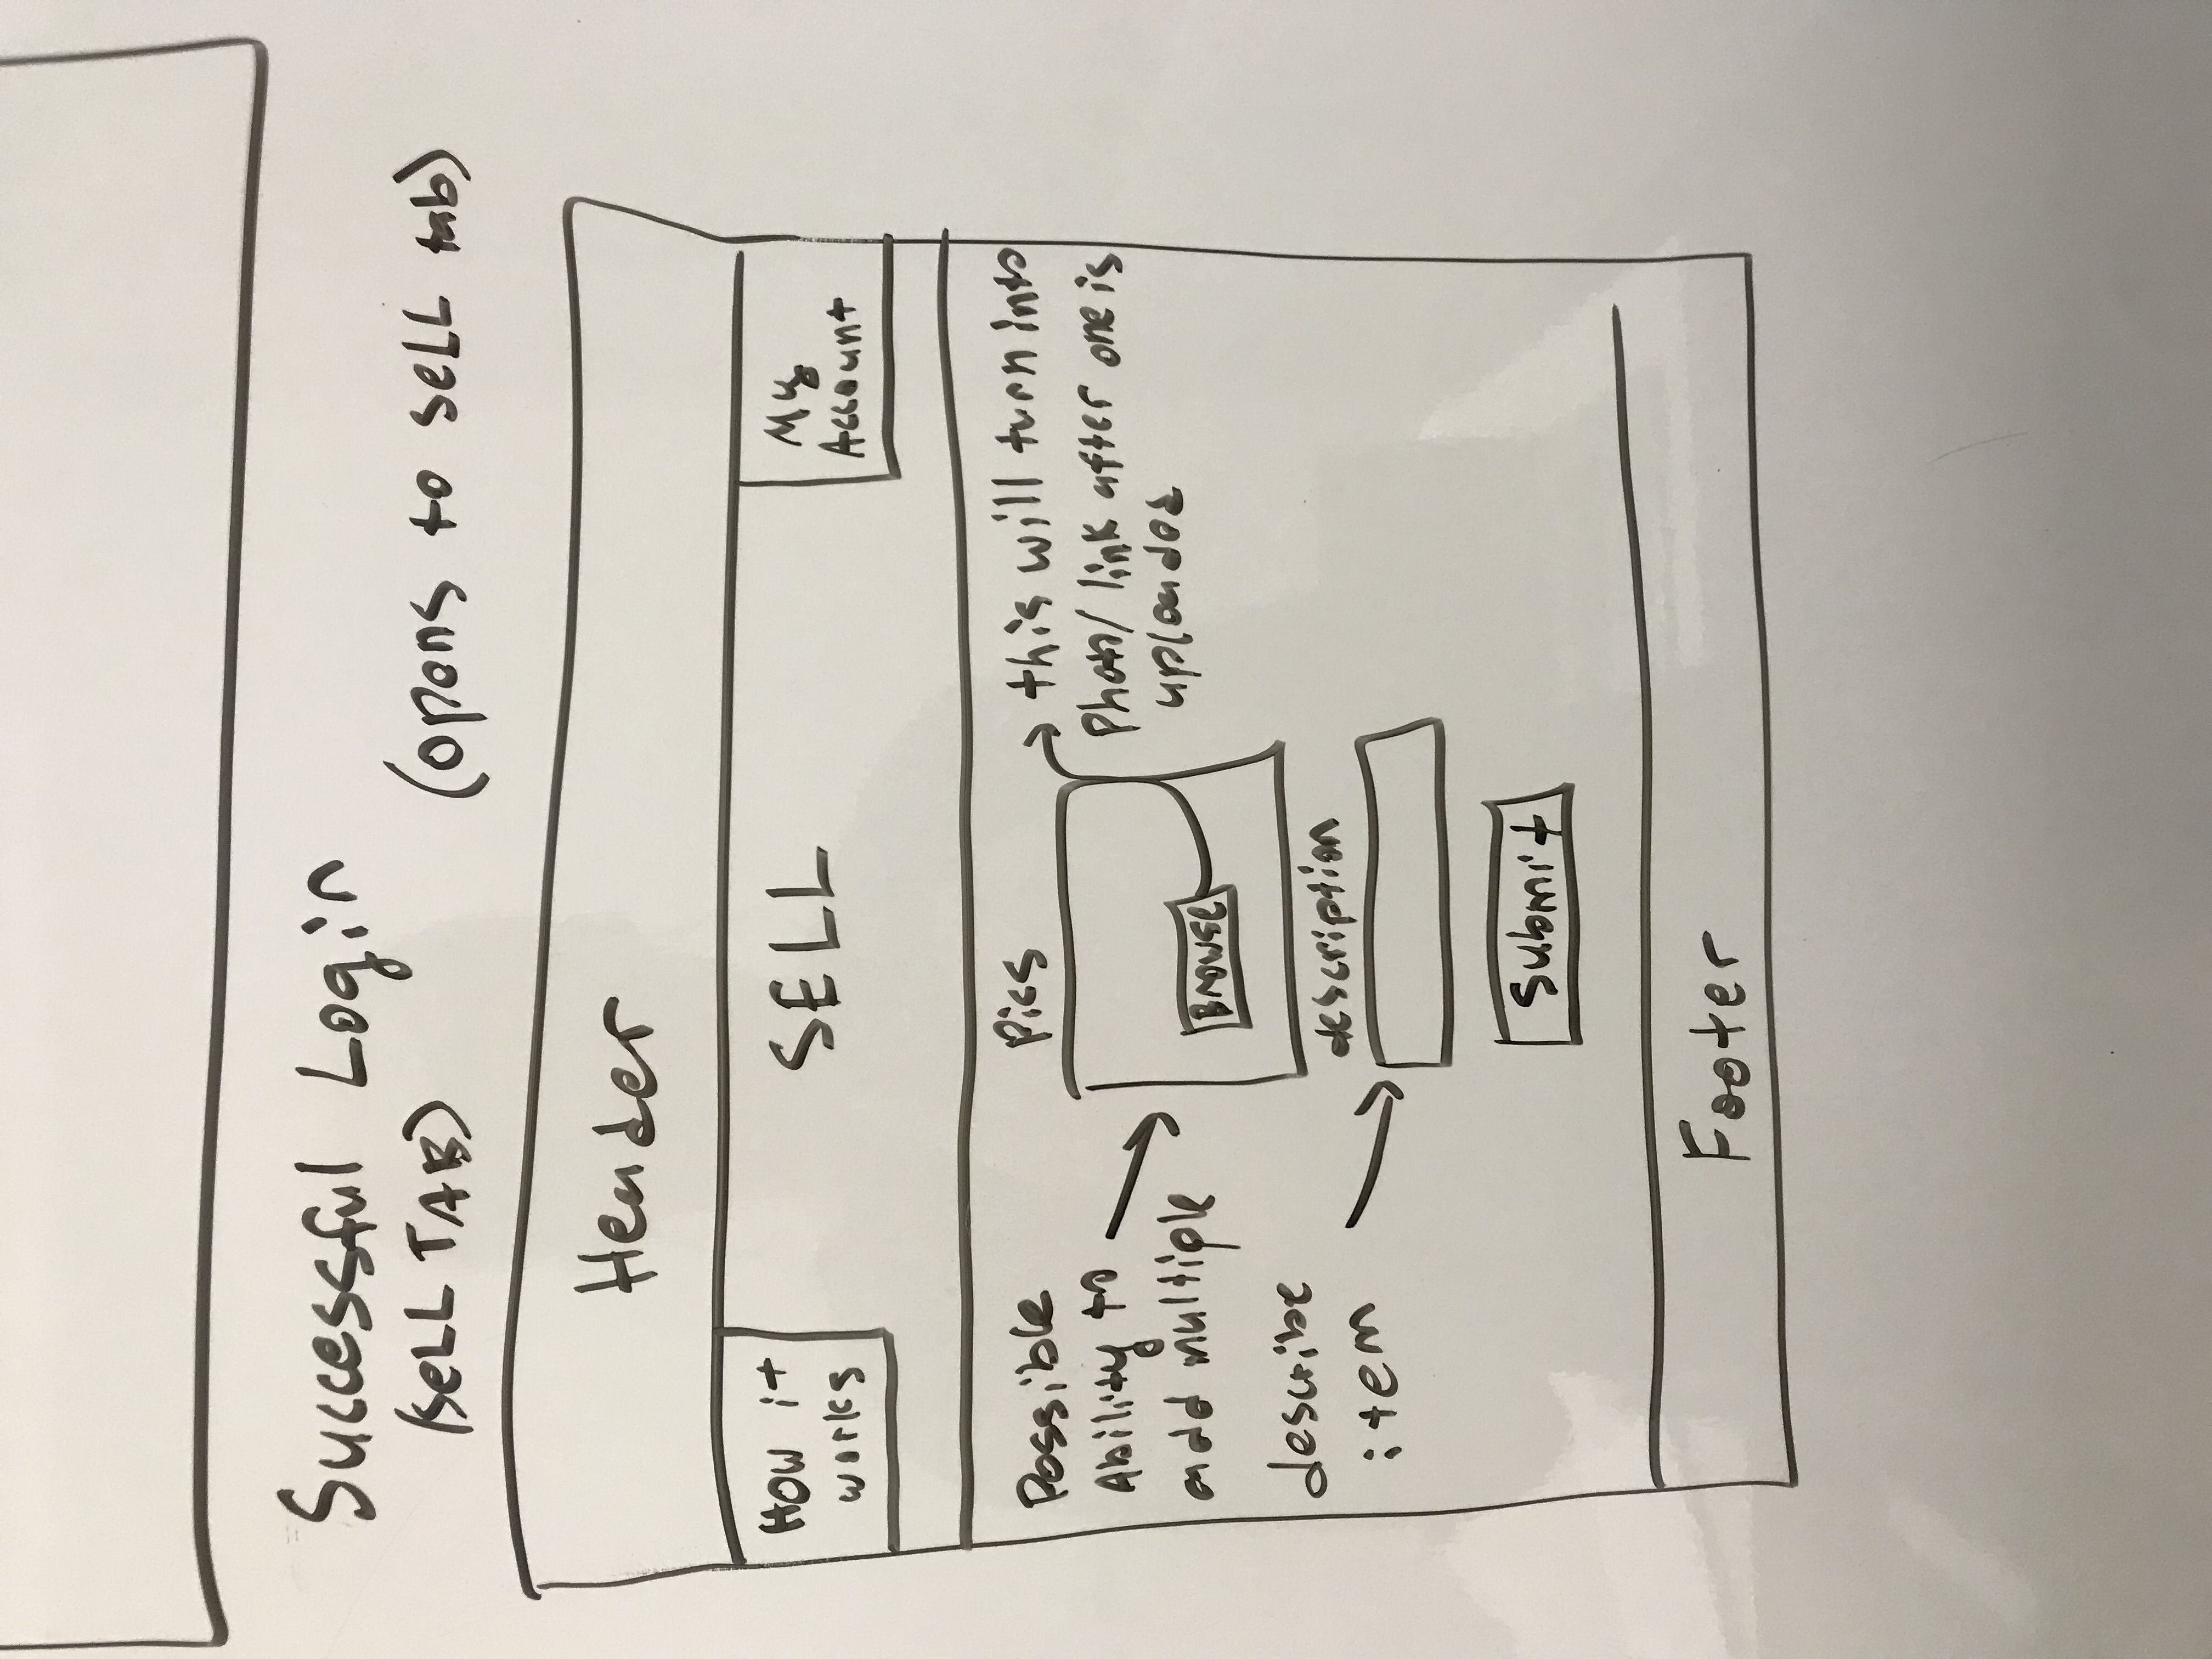 Successful Login
(SELL TAB)
(opens to sell tab)
Header
How it
works
SELL
My
Account
Possible
Ability to
add multiple
Pics
Browse
this will turn into
Photo/link after one is
uploaded
describe
item
description
Submit
Footer